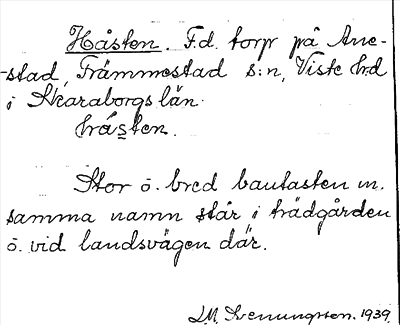 Håsten. F.d. torp på Åne-
stad, Främmestad s:n, Viste hd
i Skaraborgs län.
hǻsten.
Stor o. bred bautasten m.
samma namn står i trädgården
o. vid landsvägen där.
Svenungsson. 1939.